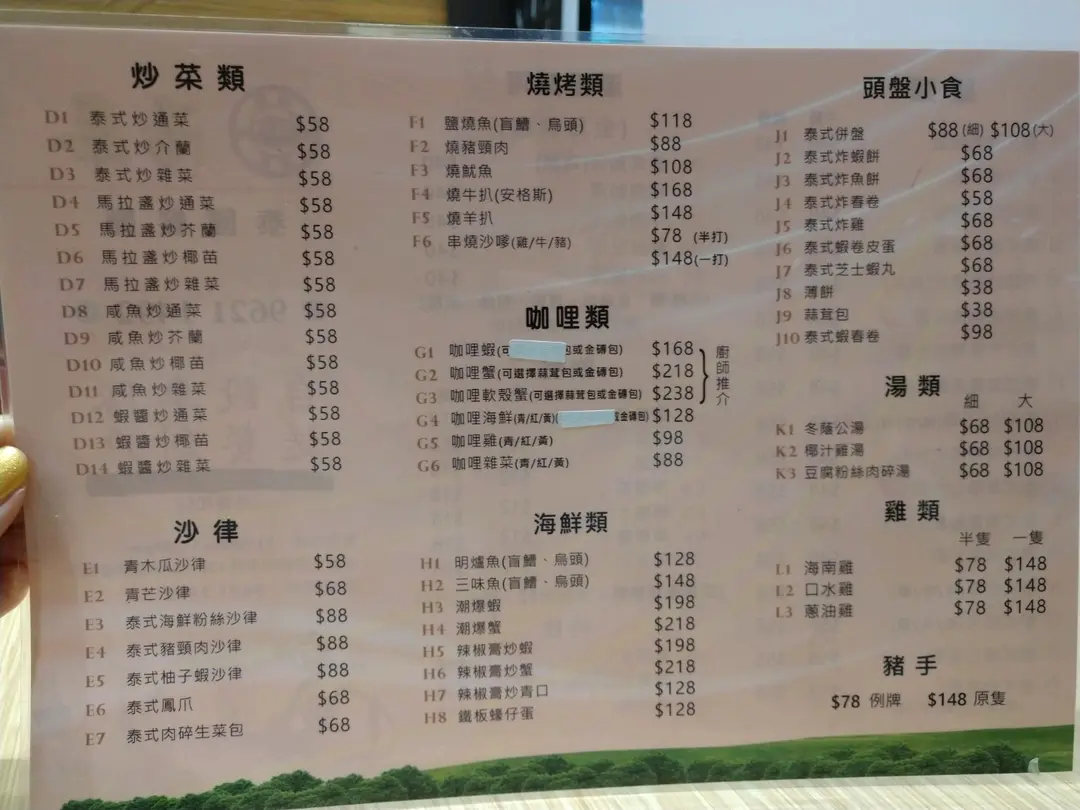 炒菜類
D1 泰式炒通菜 $58
D2 泰式炒介蘭 $58
D3 泰式炒雜菜 $58
D4 馬拉盞炒通菜 $58
D5 馬拉盞炒芥蘭 $58
D6 馬拉盞炒椰苗 $58
D7 馬拉盞炒雜菜 $58
D8 咸魚炒通菜 $58
D9 咸魚炒芥蘭 $58
D10 咸魚炒椰苗 $58
D11 咸魚炒雜菜 $58
D12 蝦醬炒通菜 $58
D13 蝦醬炒椰苗 $58
D14 蝦醬炒雜菜 $58
沙律
E1 青木瓜沙律 $58
E2 青芒沙律 $68
E3 泰式海鮮粉絲沙律 $88
E4 泰式豬頸肉沙律 $88
E5 泰式柚子蝦沙律 $88
E6 泰式鳳爪 $68
E7 泰式肉碎生菜包 $68
燒烤類
F1 鹽燒魚(盲鰽、烏頭) $118
F2 燒豬頸肉 $88
F3 燒魷魚 $108
F4 燒牛扒(安格斯) $168
F5 燒羊扒 $148
F6 串燒沙嗲(雞/牛/豬) $78 (半打)
$148(一打)
咖哩類
G1 咖哩蝦(可 包或金磚包) $168
G2 咖哩蟹(可選擇蒜茸包或金磚包) $218
G3 咖哩軟殼蟹(可選擇蒜茸包或金磚包) $238
廚師推介
G4 咖哩海鮮(青/紅/黃)( 或金磚包) $128
G5 咖哩雞(青/紅/黃) $98
G6 咖哩雜菜(青/紅/黃) $88
海鮮類
H1 明爐魚(盲鰽、烏頭) $128
H2 三味魚(盲鰽、烏頭) $148
H3 潮爆蝦 $198
H4 潮爆蟹 $218
H5 辣椒膏炒蝦 $198
H6 辣椒膏炒蟹 $218
H7 辣椒膏炒青口 $128
H8 鐵板蠔仔蛋 $128
頭盤小食
J1 泰式併盤 $88(細) $108(大)
J2 泰式炸蝦餅 $68
J3 泰式炸魚餅 $68
J4 泰式炸春卷 $58
J5 泰式炸雞 $68
J6 泰式蝦卷皮蛋 $68
J7 泰式芝士蝦丸 $68
J8 薄餅 $38
J9 蒜茸包 $38
J10 泰式蝦春卷 $98
湯類
細 大
K1 冬蔭公湯 $68 $108
K2 椰汁雞湯 $68 $108
K3 豆腐粉絲肉碎湯 $68 $108
雞類
半隻 一隻
L1 海南雞 $78 $148
L2 口水雞 $78 $148
L3 蔥油雞 $78 $148
豬手
$78 例牌 $148 原隻